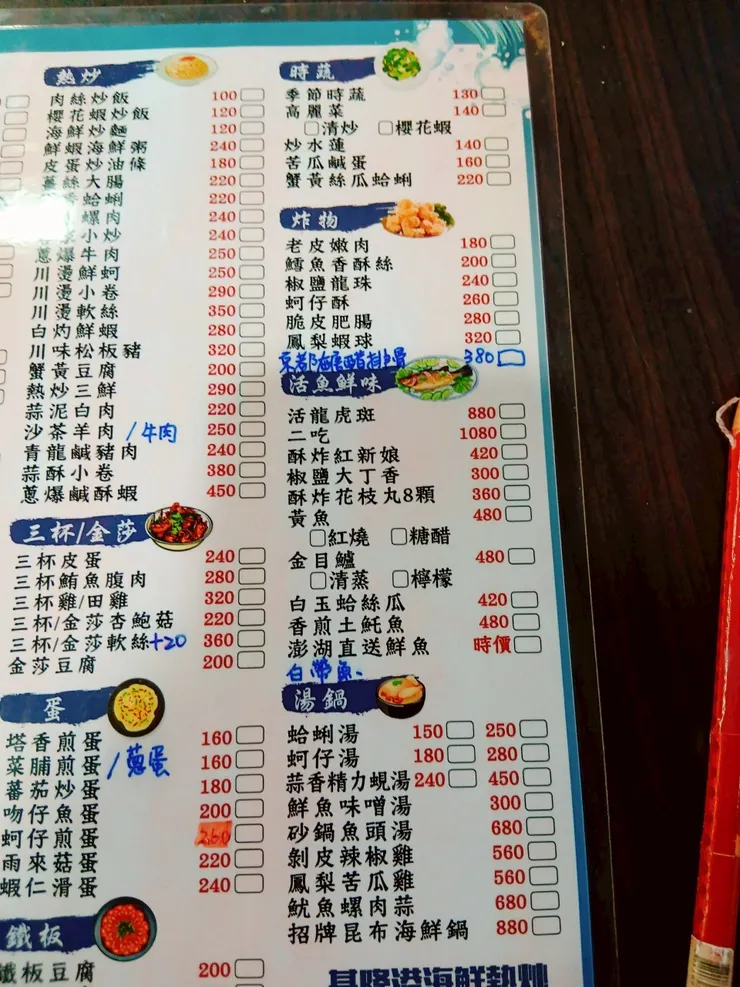 熱炒
肉絲炒飯 100
櫻花蝦炒飯 120
海鮮炒麵 120
鮮蝦海鮮粥 240
皮蛋炒油條 180
薑絲大腸 220
香蛤蜊 220
螺肉 240
小炒 240
蔥爆牛肉 250
川燙鮮蚵 250
川燙小卷 290
川燙軟絲 350
白灼鮮蝦 280
川味松板豬 320
蟹黃豆腐 200
熱炒三鮮 290
蒜泥白肉 220
沙茶羊肉 /牛肉 250
青龍鹹豬肉 240
蒜酥小卷 380
蔥爆鹹酥蝦 450
三杯/金莎
三杯皮蛋 240
三杯鮪魚腹肉 280
三杯雞/田雞 320
三杯/金莎杏鮑菇 220
三杯/金莎軟絲+20 360
金莎豆腐 200
蛋
塔香煎蛋 160
菜脯煎蛋 /蔥蛋 160
蕃茄炒蛋 180
吻仔魚蛋 200
蚵仔煎蛋 260
雨來菇蛋 220
蝦仁滑蛋 240
鐵板
鐵板豆腐 200
時蔬
季節時蔬 130
高麗菜 140
清炒 櫻花蝦
炒水蓮 140
苦瓜鹹蛋 160
蟹黃絲瓜蛤蜊 220
炸物
老皮嫩肉 180
鱈魚香酥絲 200
椒鹽龍珠 240
蚵仔酥 260
脆皮肥腸 280
鳳梨蝦球 320
京都 排骨 380
活魚鮮味
活龍虎斑 880
二吃 1080
酥炸紅新娘 420
椒鹽大丁香 300
酥炸花枝丸8顆 360
黃魚 480
紅燒 糖醋
金目鱸 480
清蒸 檸檬
白玉蛤絲瓜 420
香煎土魠魚 480
澎湖直送鮮魚 時價
白帶魚、
湯鍋
蛤蜊湯 150 250
蚵仔湯 180 280
蒜香精力蜆湯 240 450
鮮魚味噌湯 300
砂鍋魚頭湯 680
剝皮辣椒雞 560
鳳梨苦瓜雞 560
魷魚螺肉蒜 680
招牌昆布海鮮鍋 880
基隆港海鮮熱炒